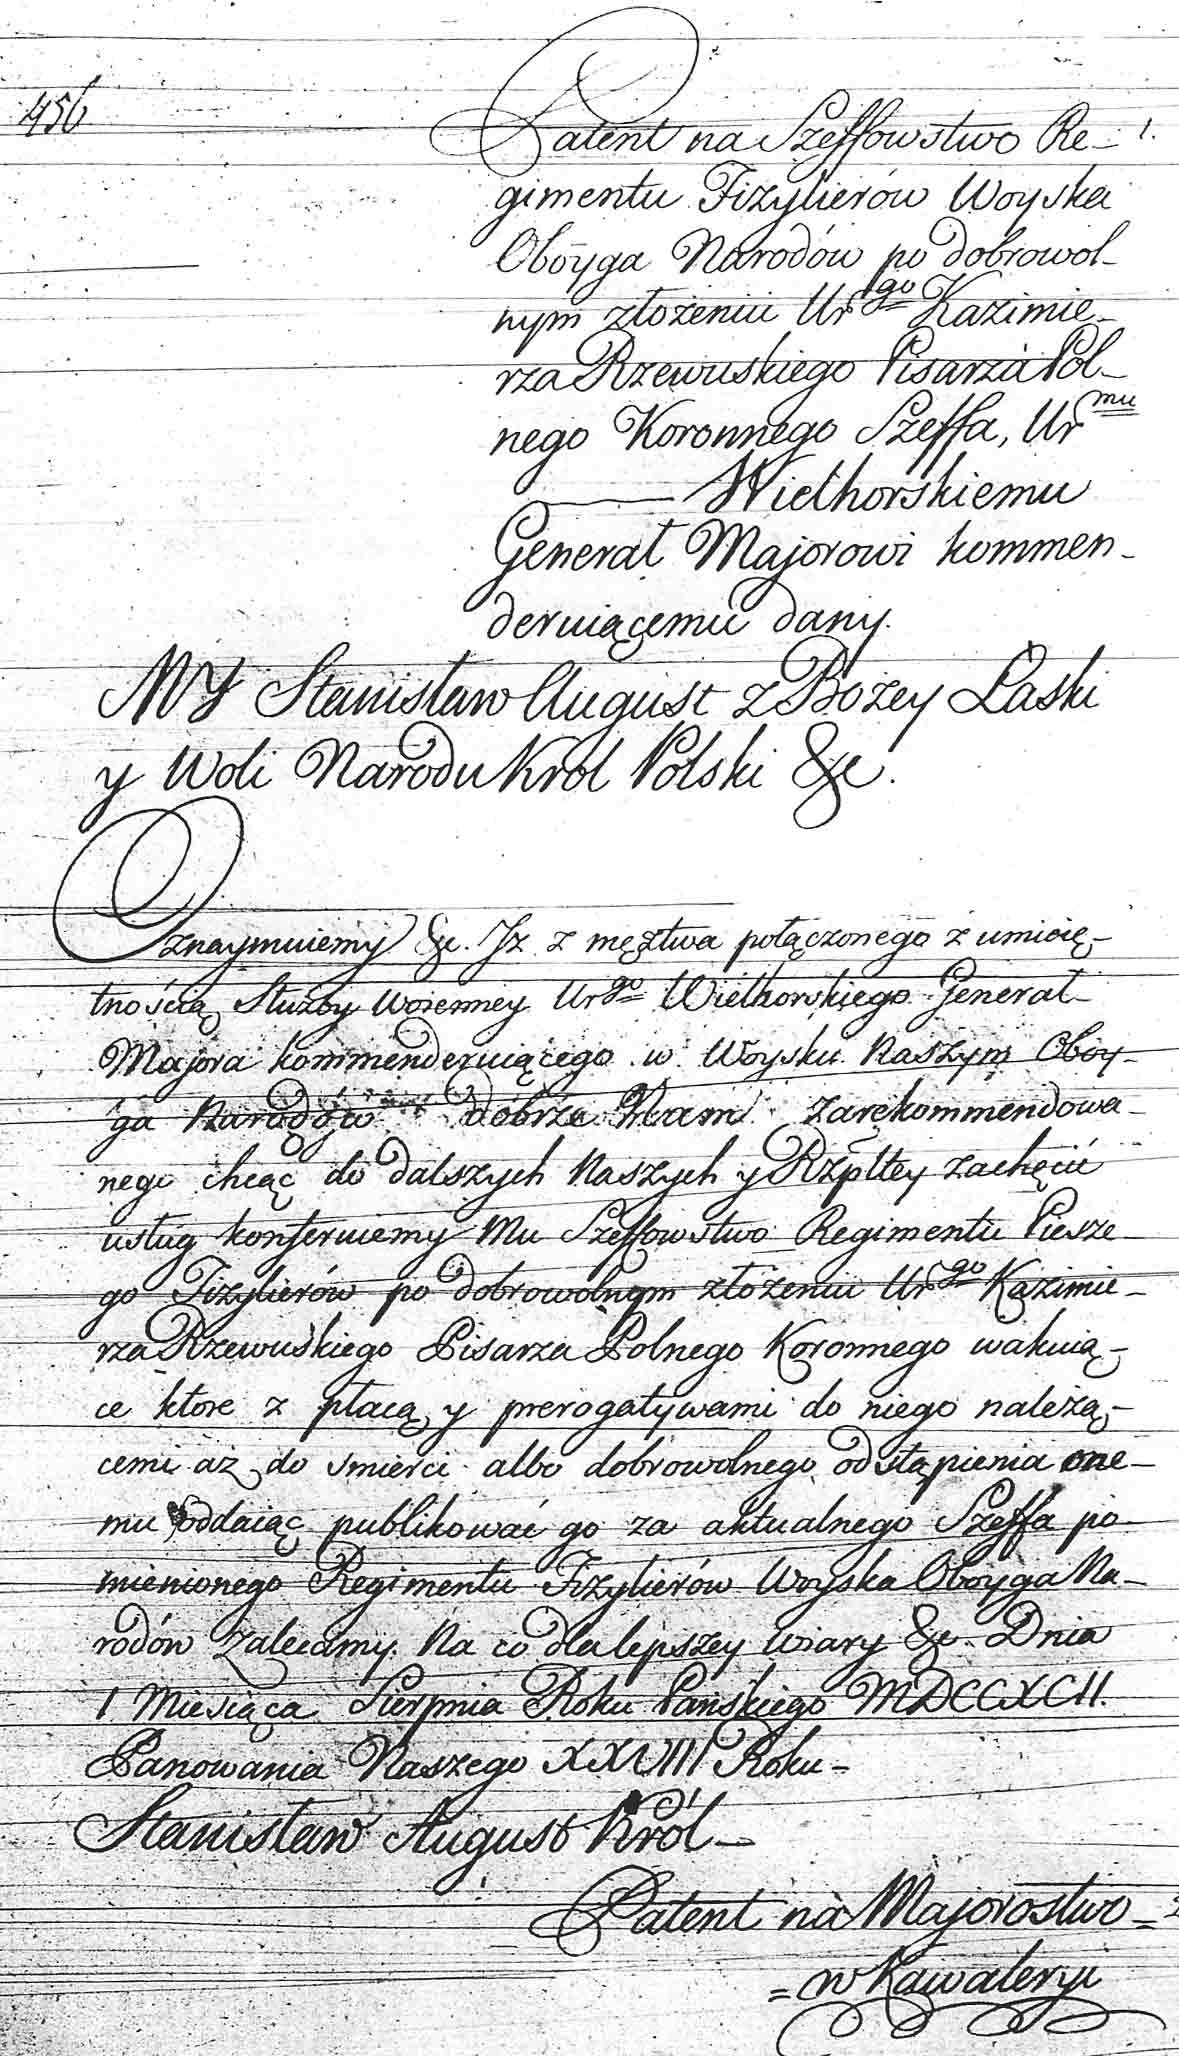 456
Patent na Szeffowstwo Re- 1.
gimentu Fizylierów Woyska
Oboyga Narodów po dobrowol-
nym złożeniu Urgo Kazimie-
rza Rzewuskiego Pisarza Pol-
nego Koronnego Szeffa, Urmu
——— Wielhorskiemu
Generał Majorowi kommen-
deruiącemu dany.
MY Stanisław August z Bożey Łaski
y Woli Narodu Krol Polski &c.
Oznaymuiemy &c. Iż z męztwa połączonego z umieię-
tnością Służby woienney Urgo Wielhorskiego Generał
Majora kommenderuiącego w Woysku Naszym Oboy-
ga Narodów dobrze Nam zarekommendowa-
nego chcąc do dalszych Naszych y Rzpltey zachęcić
usług konferuiemy Mu Szeffowstwo Regimentu Piesze-
go Fizylierów po dobrowolnym złożeniu Urgo Kazimie-
rza Rzewuskiego Pisarza Polnego Koronnego wakuią-
ce ktore z płacą y prerogatywami do niego należą-
cemi aż do smierci albo dobrowolnego odstąpienia one-
mu oddaiąc publikować go za aktualnego Szeffa po-
mienionego Regimentu Fizylierów Woyska Oboyga Na-
rodów zalecamy. Na co dla lepszey wiary &c. Dnia
1 Miesiąca Sierpnia Roku Pańskiego MDCCXCII.
Panowania Naszego XXVIII Roku-
Stanisław August Król-
Patent na Majorostwo=
=w Kawaleryi